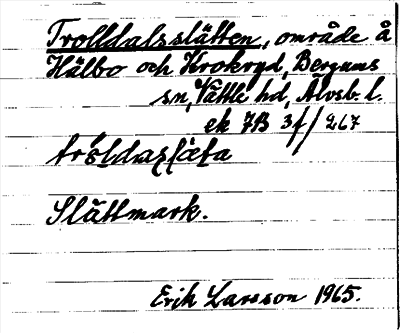 Trolldalsslätten, område å
Hålbo och Krokryd, Bergums
sn, Vättle hd, Älvsb. l.
ek 7B 3f/267
Slättmark.
Erik Larsson 1965.